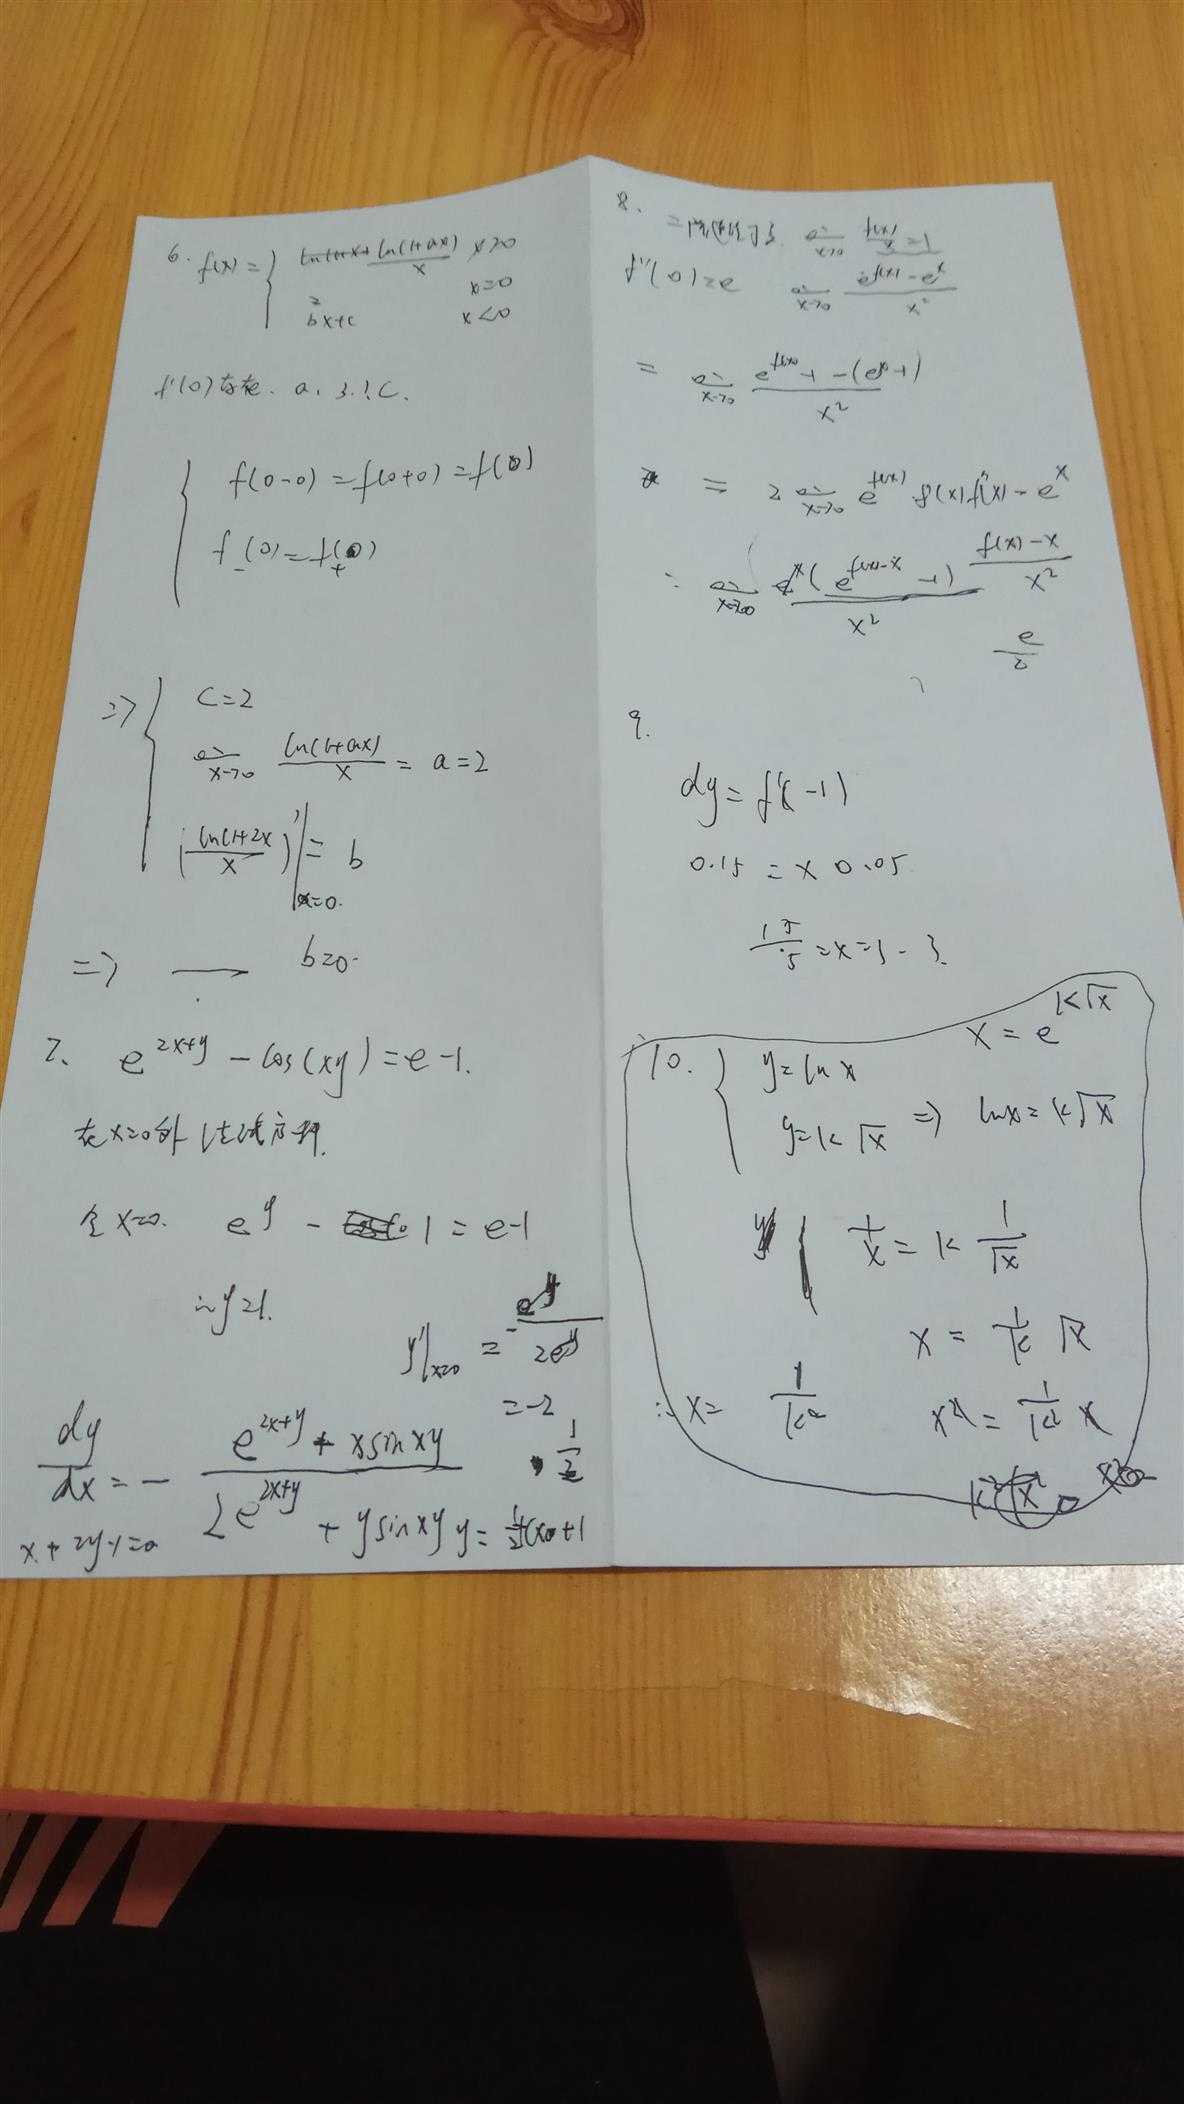 6. f(x) = { ln(1+ax)/x x>0
2 x=0
bx+c x<0
f'(0)存在. a, b, c.
{ f(0-0) = f(0+0) = f(0)
f'_-(0) = f'_+(0)
=> { c=2
lim x→0 ln(1+ax)/x = a = 2
(ln(1+2x)/x)' |x=0 = b
=> b=0.
7. e^(2x+y) - cos(xy) = e-1.
在x=0处 法线方程.
令x=0. e^y - 1 = e-1
∴ y=1.
y'|x=0 = - e^y/2e^y
= -2
1/2
dy/dx = - (e^(2x+y) + x sin xy)/(2e^(2x+y) + y sin xy)
y = 1/2(x0+1
x+2y-1=0
8. 二阶连续可导. lim x→0 f(x)/x = 1
f''(0)=e lim x→0 (e^f(x) - e^x)/x^2
= lim x→0 (e^f(x) - 1 - (e^x - 1))/x^2
= 2 lim x→0 e^f(x) f'(x) f''(x) - e^x
= lim x→0 e^x(e^(f(x)-x) - 1)/x^2 (f(x)-x)/x^2
e/2
9.
dy = f'(-1)
0.15 = x 0.05
15/5 = x = 3
10. { y = ln x x = e^(k√x)
y = k√x => lnx = k√x
1/x = k 1/√x
x = 1/k √x
∴ x = 1/k^2 x^2 = 1/k^2 x